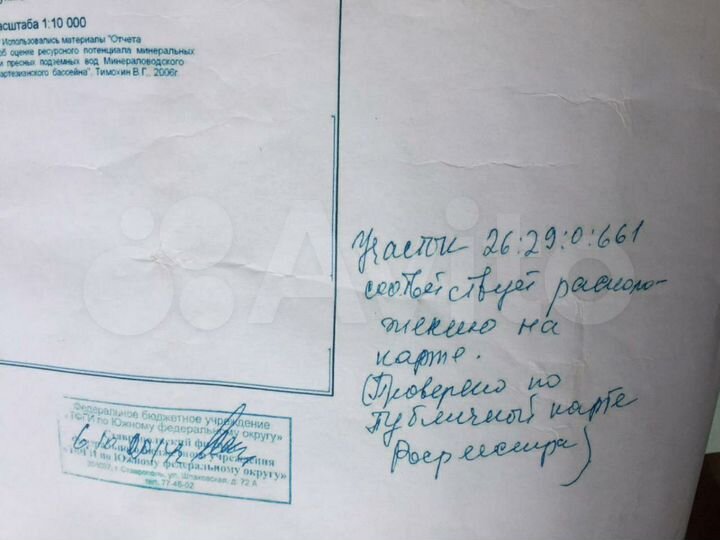 масштаба 1:10 000
Использовались материалы "Отчета
об оценке ресурсного потенциала минеральных
и пресных подземных вод Минераловодского
артезианского бассейна". Тимохин В.Г., 2006г.
Участок 26:29:0:661
соответствует располо-
жению на
карте.
(Проверено по
Публичной карте
Росреестра)
Федеральное бюджетное учреждение
«ТФГИ по Южному федеральному округу»
«ТФГИ по Южному федеральному округу»
г. Ставрополь, ул. Шпаковская, д. 72 А
тел. 77-46-02
Avito